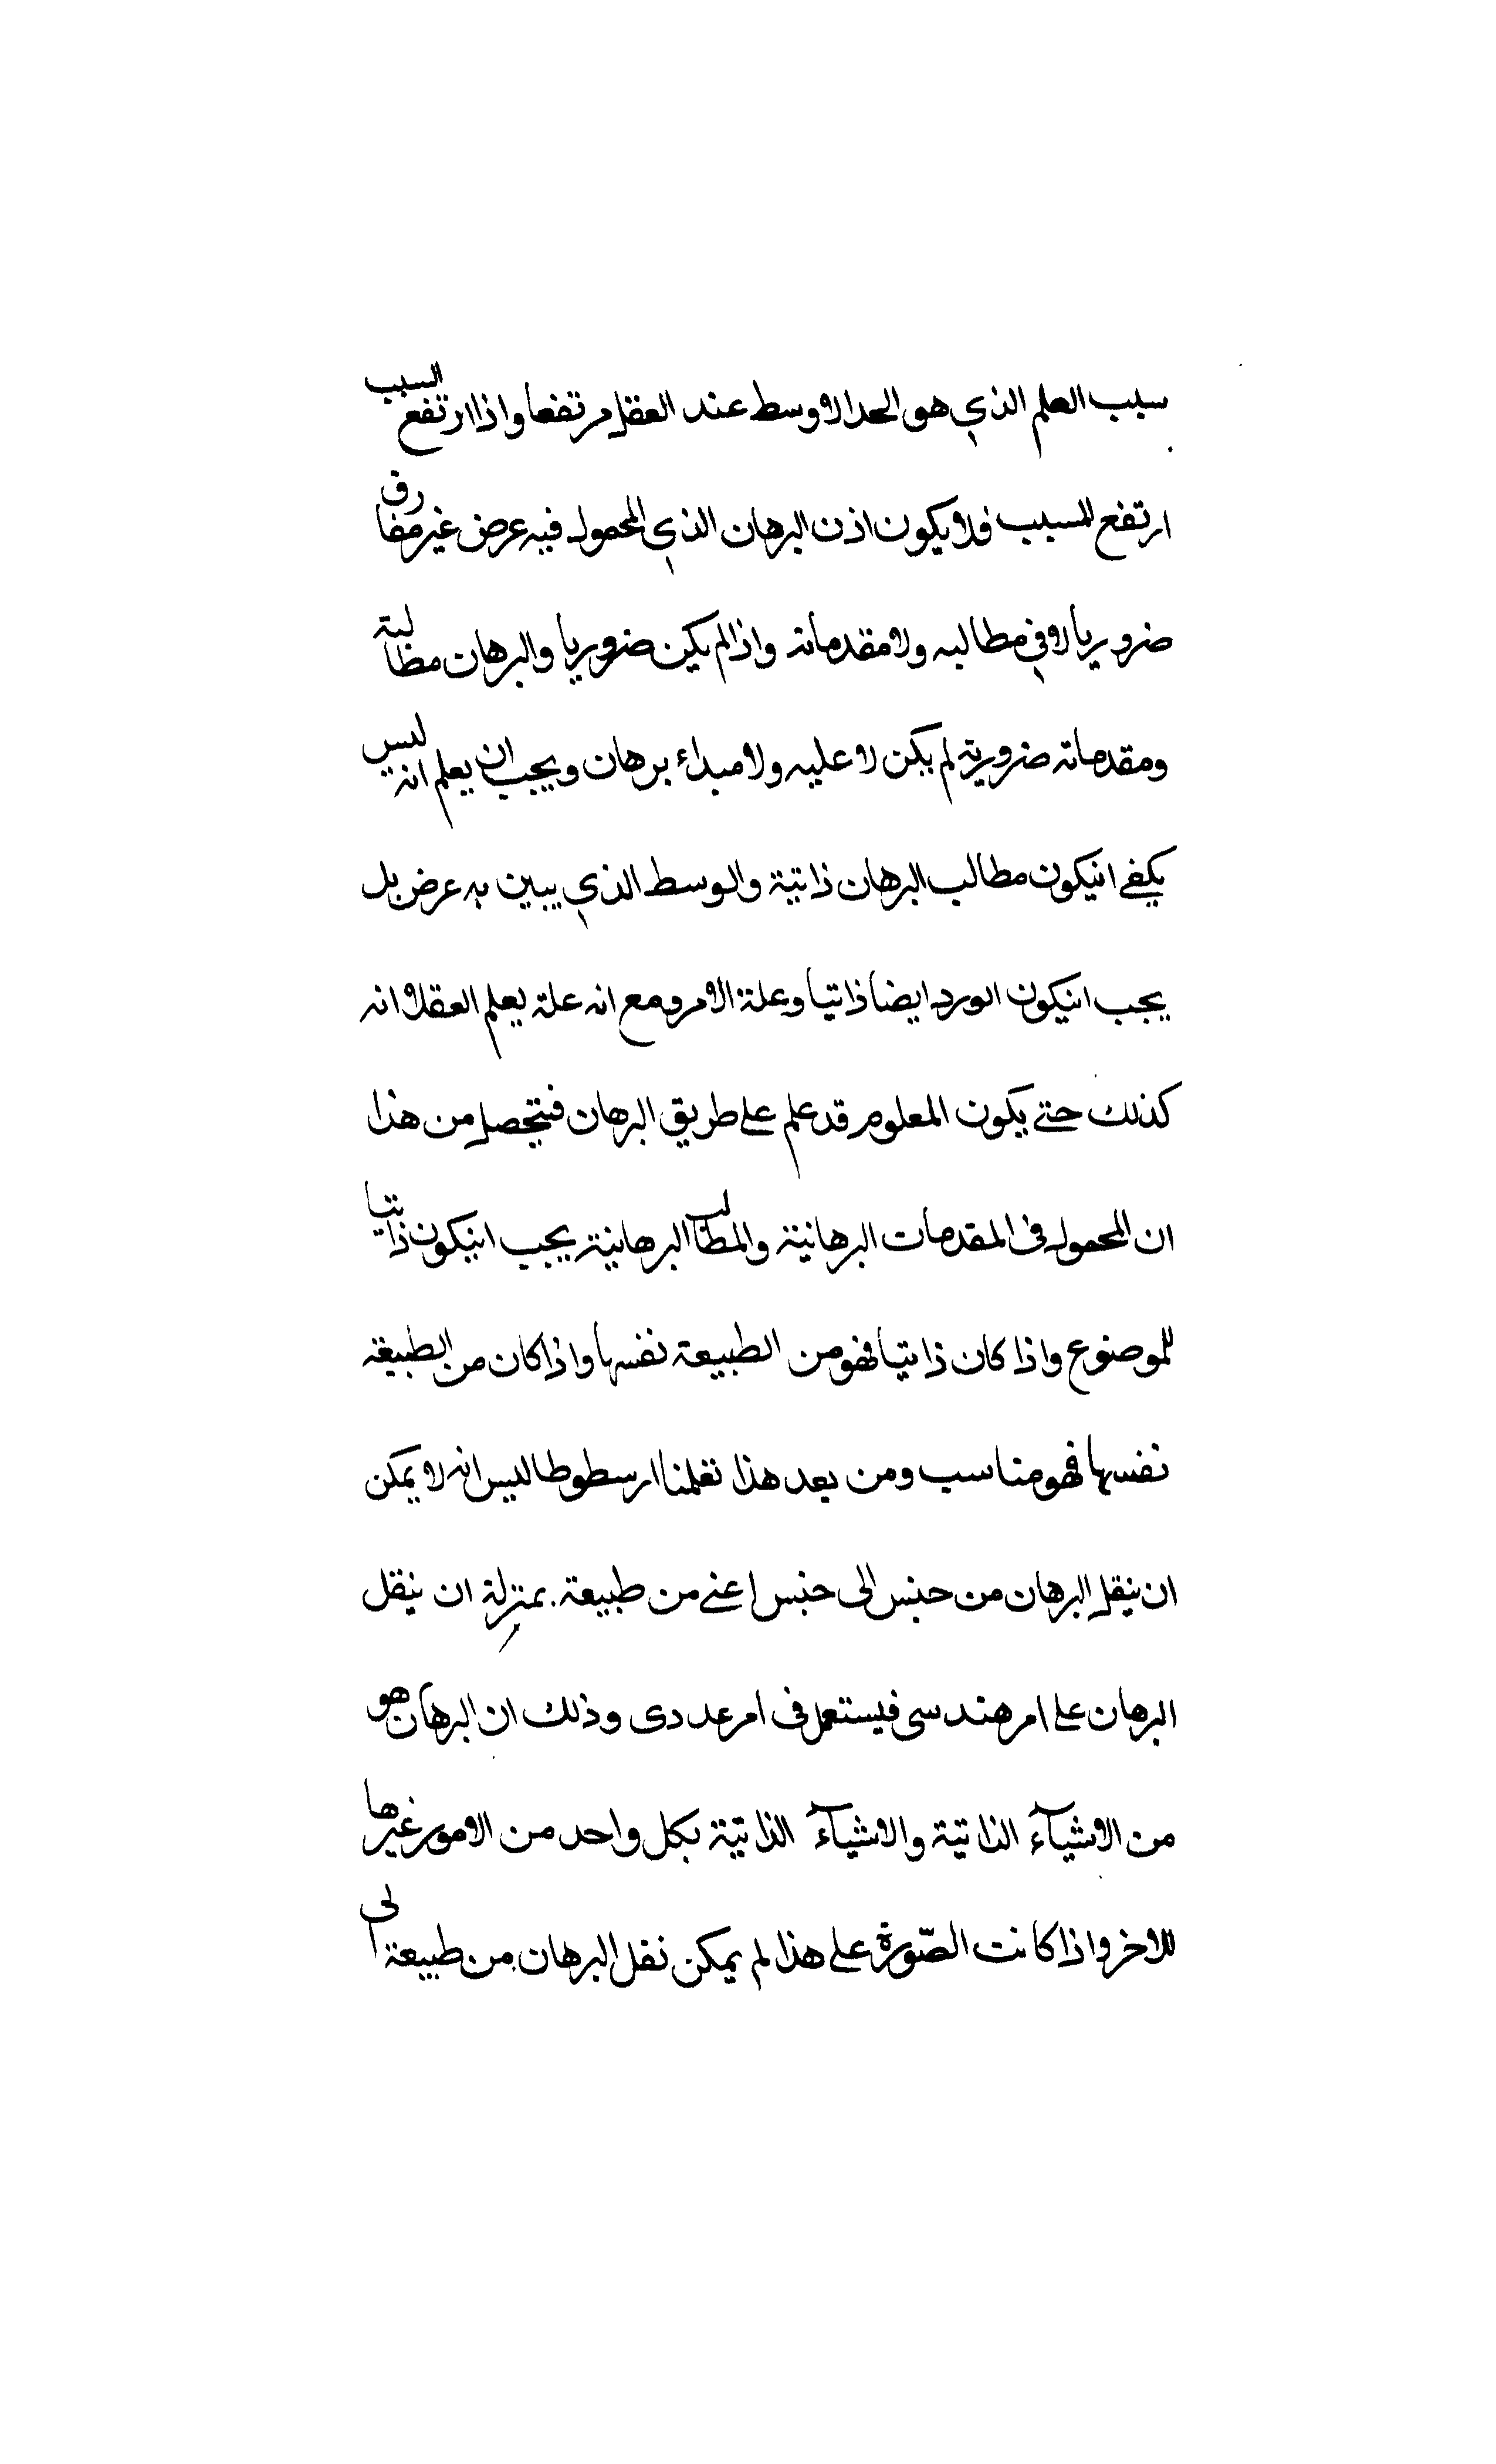 سبب العلم الذي هو الحد الاوسط عند العقل مرتفعا واذا ارتفع السبب
ارتفع المسبب فلا يكون اذن البرهان الذي المحمول فيه عرض غير مفارق
ضروريا لا في مطالبه ولا مقدماته واذا لم يكن ضروريا والبرهان مطالبه
ومقدماته ضرورية لم يكن لا عليه ولا مبداء برهان ويجب ان يعلم انه ليس
يكفے انيكون مطالب البرهان ذاتية والوسط الذي يبين به عرض بل
يجب انيكون ايضا ذاتيا وعلة الامر ومع انه علة يعلم العقل انه
كذلك حتے يكون المعلوم قد علم علے طريق البرهان فتحصل من هذا
ان المحمول فى المقدمات البرهانية والمطالب البرهانية يجب انيكون ذاتيا
للموضوع واذا كان ذاتيا فهو من الطبيعة نفسها واذا كان من الطبيعة
نفسها فهو مناسب ومن بعد هذا تعلمنا ارسطوطاليس انه لا يمكن
ان ينقل البرهان من جنس الى جنس اعنے من طبيعة بمنزلة ان ينقل
البرهان علے امر هندسى فيستعمل فى امر عددى وذلك ان البرهان هو
من الاشيآء الذاتية والاشيآء الذاتية بكل واحد من الامور غيرها
للاخر واذا كانت الصّورة علے هذا لم يمكن نقل البرهان من طبيعة الى